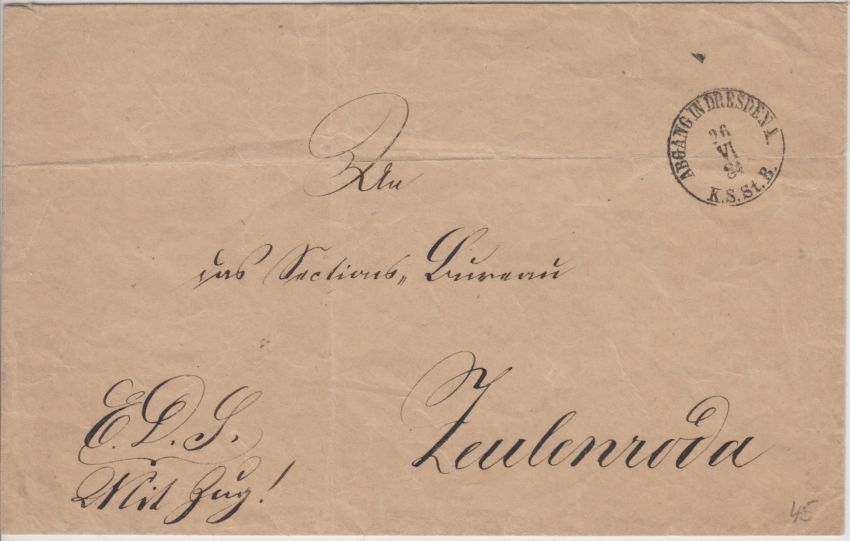 ABGANG IN DRESDEN A.
26
VI
84
K.S.St.B.
An
das Sections-Bureau
Zeulenroda
E.D.S.
Mit Zug!
45